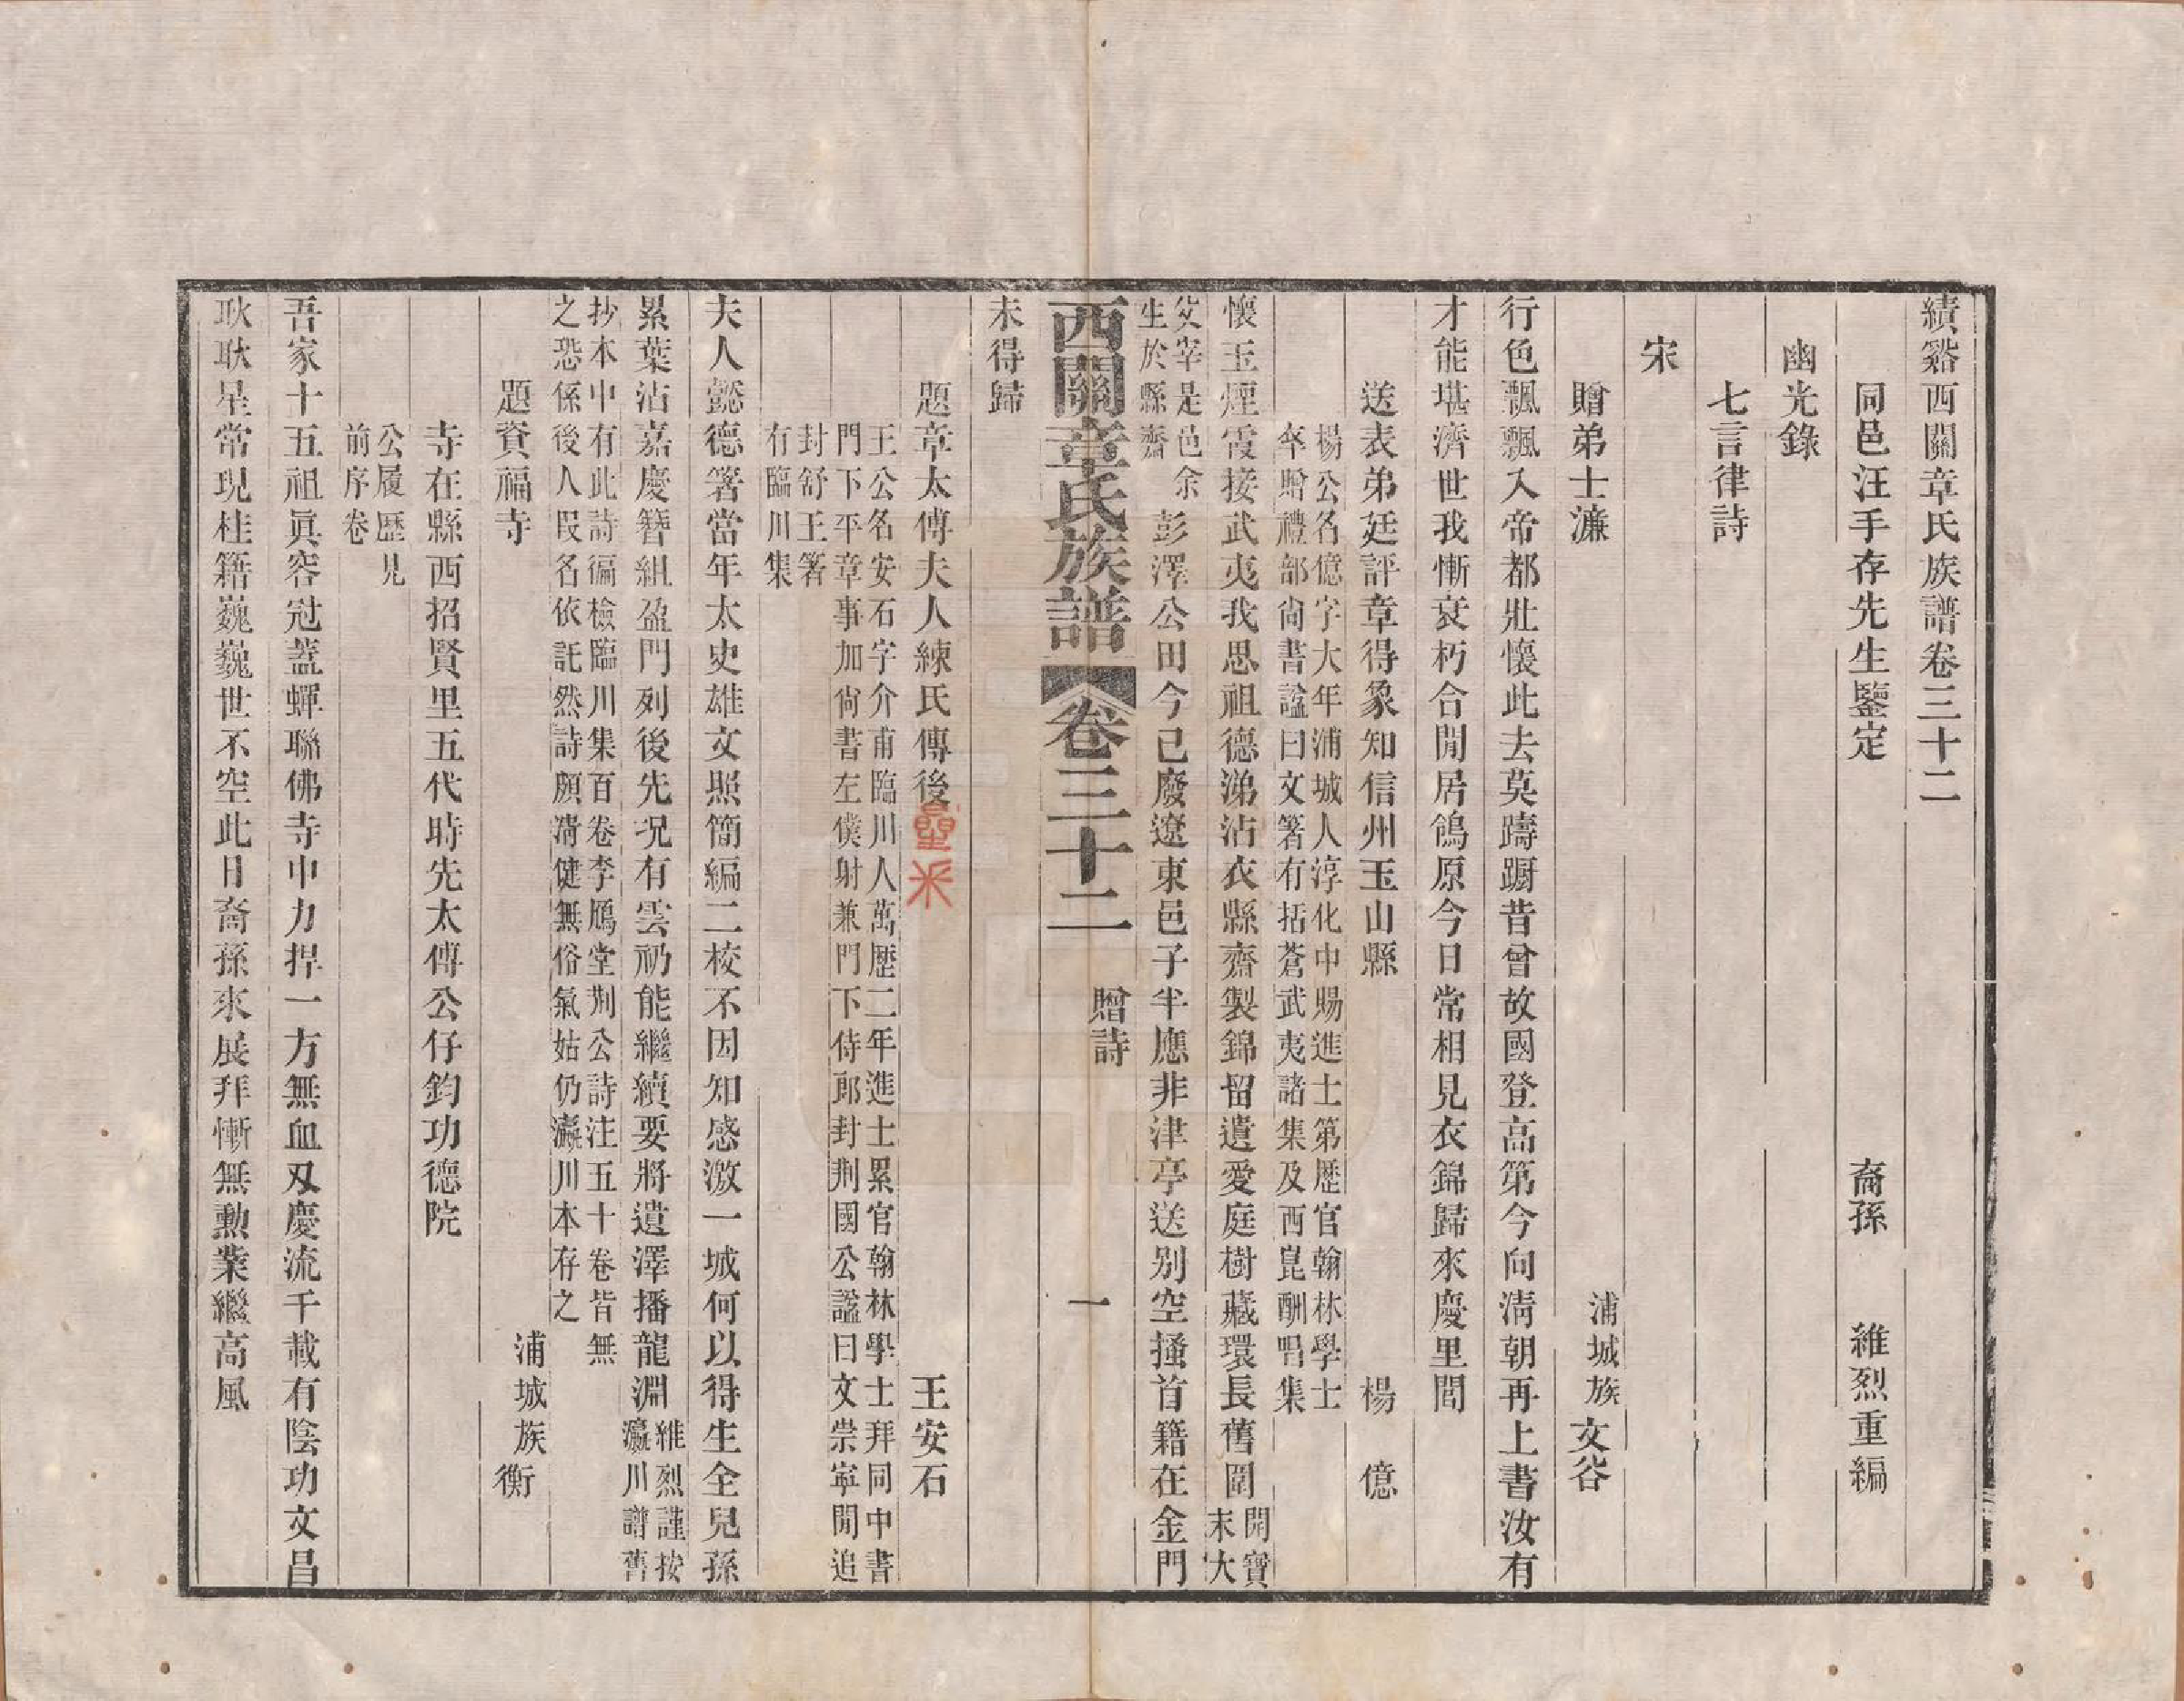 績谿西關章氏族譜卷三十二
同邑汪手存先生鑒定　裔孫　維烈重編
幽光錄
七言律詩
宋
贈弟士濂　浦城族文谷
行色飄飄入帝都壯懷此去莫躊躕昔曾故國登高第今向淸朝再上書汝有
才能堪濟世我慚衰朽合閒居鴒原今日常相見衣錦歸來慶里閭
送表弟廷評章得象知信州玉山縣　楊億
楊公名億字大年浦城人淳化中賜進士第歷官翰林學士
卒贈禮部尙書諡曰文箸有括蒼武夷諸集及西崑酬唱集
懷玉煙霞接武夷我思祖德涕沾衣縣齋製錦留遺愛庭樹藏環長舊圍
開寶
末大
父宰是邑余
生於縣齋
彭澤公田今已廢遼東邑子半應非津亭送別空搔首籍在金門
西關章氏族譜　卷三十二　贈詩　一
未得歸
題章太傅夫人練氏傳後　王安石
王公名安石字介甫臨川人萬歷二年進士累官翰林學士拜同中書
門下平章事加尙書左僕射兼門下侍郎封荆國公諡曰文崇寧閒追
封舒王箸
有臨川集
夫人懿德箸當年太史雄文照簡編二校不因知感激一城何以得生全兒孫
累葉沾嘉慶簪組盈門列後先況有雲礽能繼續要將遺澤播龍淵
維烈謹按
瀛川譜舊
抄本中有此詩徧檢臨川集百卷李鴈堂荆公詩注五十卷皆無
之恐係後人叚名依託然詩頗淸健無俗氣姑仍瀛川本存之
題資福寺　浦城族衡
寺在縣西招賢里五代時先太傅公仔鈞功德院
公履歷見
前序卷
吾家十五祖眞容冠蓋蟬聯佛寺中力捍一方無血刄慶流千載有陰功文昌
耿耿星常現桂籍巍巍世不空此日裔孫來展拜慚無勳業繼高風